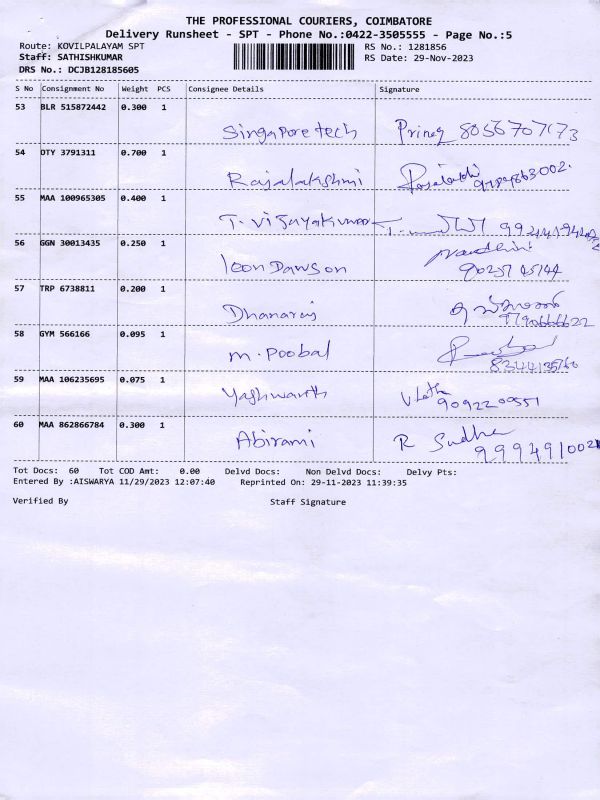 THE PROFESSIONAL COURIERS, COIMBATORE
Delivery Runsheet - SPT - Phone No.:0422-3505555 - Page No.:5
Route: KOVILPALAYAM SPT RS No.: 1281856
Staff: SATHISHKUMAR RS Date: 29-Nov-2023
DRS No.: DCJB128185605
S No Consignment No Weight PCS Consignee Details Signature
53 BLR 515872442 0.300 1
Singapore tech
54 DTY 3791311 0.700 1
Rajalakshmi
55 MAA 100965305 0.400 1
T. Vijayakumar
56 GGN 30013435 0.250 1
leon Dawson
57 TRP 6738811 0.200 1
Dhanaraj 9790666622
58 GYM 566166 0.095 1
M. Poobal
59 MAA 106235695 0.075 1
Yashwanth
60 MAA 862866784 0.300 1
Abirami R Sudha
Tot Docs: 60 Tot COD Amt: 0.00 Delvd Docs: Non Delvd Docs: Delvy Pts:
Entered By :AISWARYA 11/29/2023 12:07:40 Reprinted On: 29-11-2023 11:39:35
Verified By Staff Signature